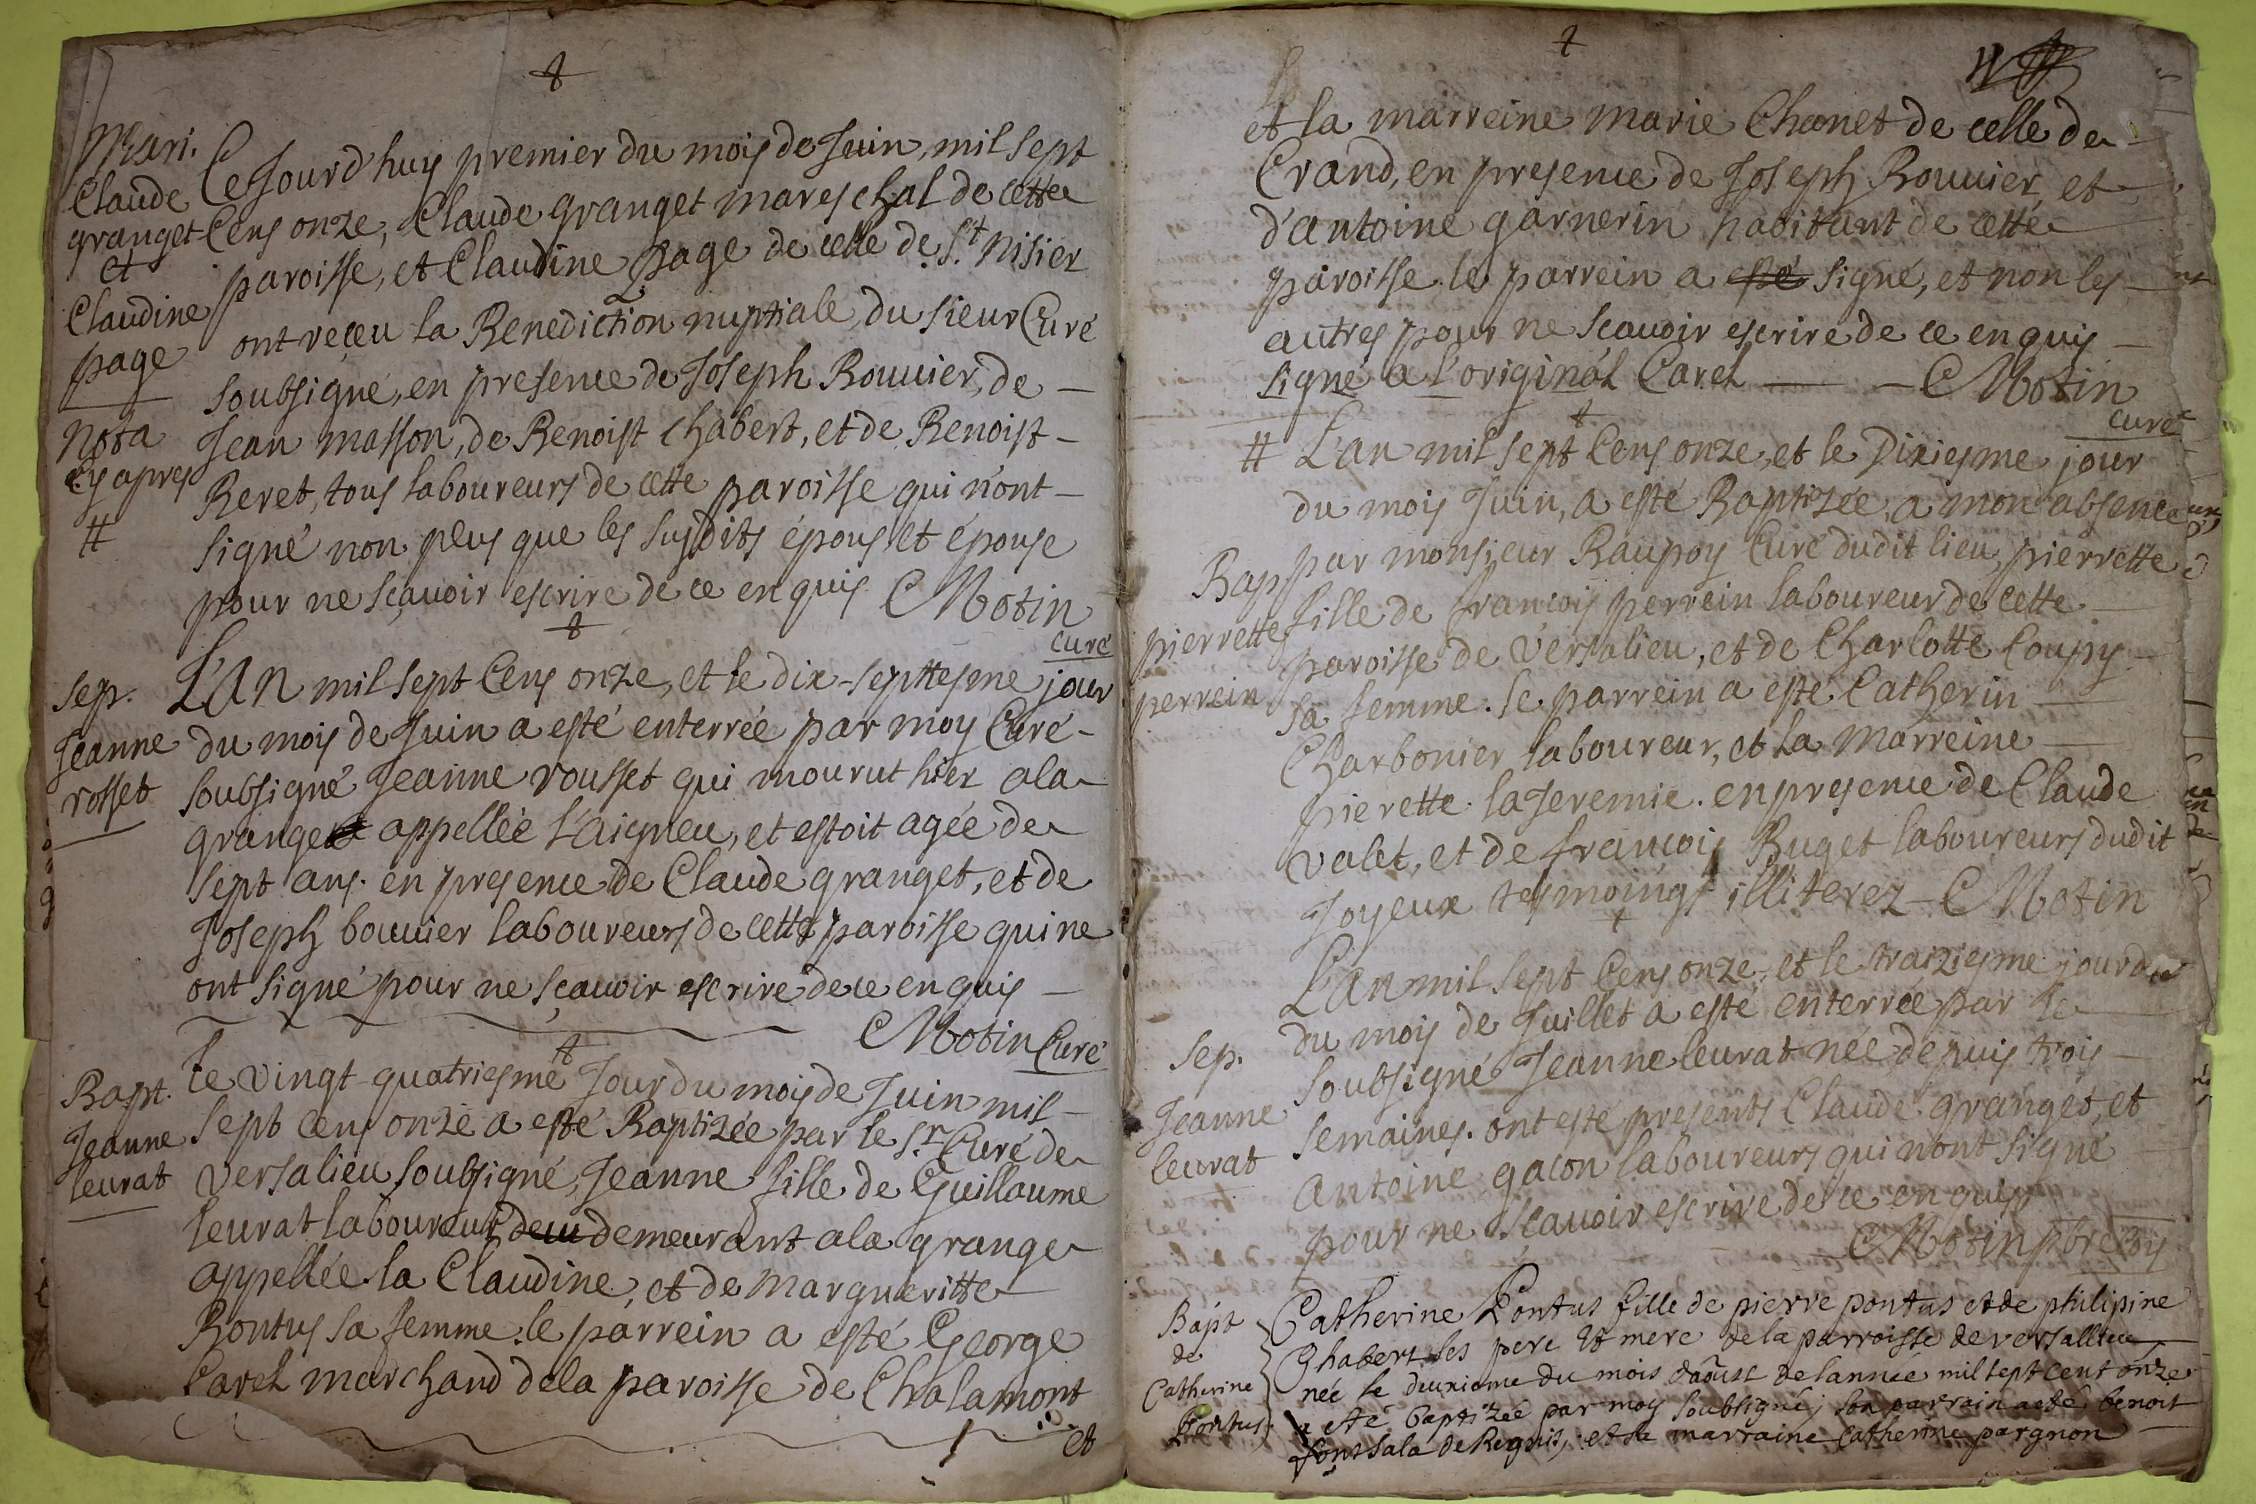 Mari.
Claude
granget
et
Claudine
page
Nota
cy apres
#
Ce Jourd'huy premier du mois de Juin, mil sept
Cens onze, Claude granget mareschal de cette
paroisse, et Claudine page de celle de St. Nisier
ont receu la Benediction nuptiale, du sieur Curé
soubsigné, en presence de Joseph Bouuier, de
Jean masson, de Benoist Chabert, et de Benoist
Beret, tous laboureurs de cette paroisse qui n'ont
signé non plus que les susdits épous et épouse
pour ne sçauoir escrire de ce enquis CMotin
curé
Sep.
Jeanne
rosset
L'An mil sept Cens onze, et le dix-septtesme jour
du mois de Juin a esté enterrée par moy Curé
soubsigné Jeanne rousset qui mourut hier a la
grange appellée L'aigneu, et estoit agée de
sept ans. en presence de Claude granget, et de
Joseph bouuier laboureurs de cette paroisse qui ne
ont signé pour ne sçauoir escrire de ce enquis
CMotin Curé
Bapt.
Jeanne
leurat
Le vingt-quatriesme Jour du mois de Juin mil
sept cens onze a esté Baptizée par le Sr. Curé de
versalieu soubsigné, Jeanne fille de Guillaume
leurat laboureur deu demeurant a la grange
appellée la Claudine, et de margueritte
Bontus sa femme. le parrein a esté George
Carel marchand de la paroisse de Chalamont
et
et la marreine marie Chanet de celle de
Crand, en presence de Joseph Bouuier, et
d'antoine garnerin habitant de cette
paroisse. le parrein a esté signé, et non les
autres pour ne scauoir escrire de ce enquis
signé a l'original Carel CMotin
curé
# L'an mil sept Cens onze, et le Dixiesme jour
du mois Juin, a esté Baptizée, a mon absence
par monsieur Baupoy Curé dudit lieu, pierrette
Bap
pierrette
perrein
fille de francois perrein laboureur de cette
paroisse de versalieu, et de Charlotte Coupy
sa femme. le parrein a esté Catherin
Charbonier laboureur, et la Marreine
pierette la Jeremie. en presence de Claude
valet, et de francois Buget laboureurs dudit
Joyeux tesmoings illiterez CMotin
L'an mil sept Cens onze, et le traiziesme jour
du mois de Juillet a esté enterrée par le
Sep.
Jeanne
leurat
soubsigné Jeanne leurat née depuis trois
semaines. ont esté presents Claude granget, et
Antoine gacon laboureurs qui n'ont signé
pour ne sçauoir escrire de ce enquis
CMotin pbre
Bapt
de
Catherine
Pontus
Catherine Pontus fille de pierre pontus et de philipine
Chabert ses pere et mere de la parroisse de versallieu
née le deuxieme du mois d'aoust de l'année mil sept cent onze
a esté baptizée par moy soubsigné, son parrain a esté benoit
fontsala de Regnis, et sa marraine Catherine pargnon